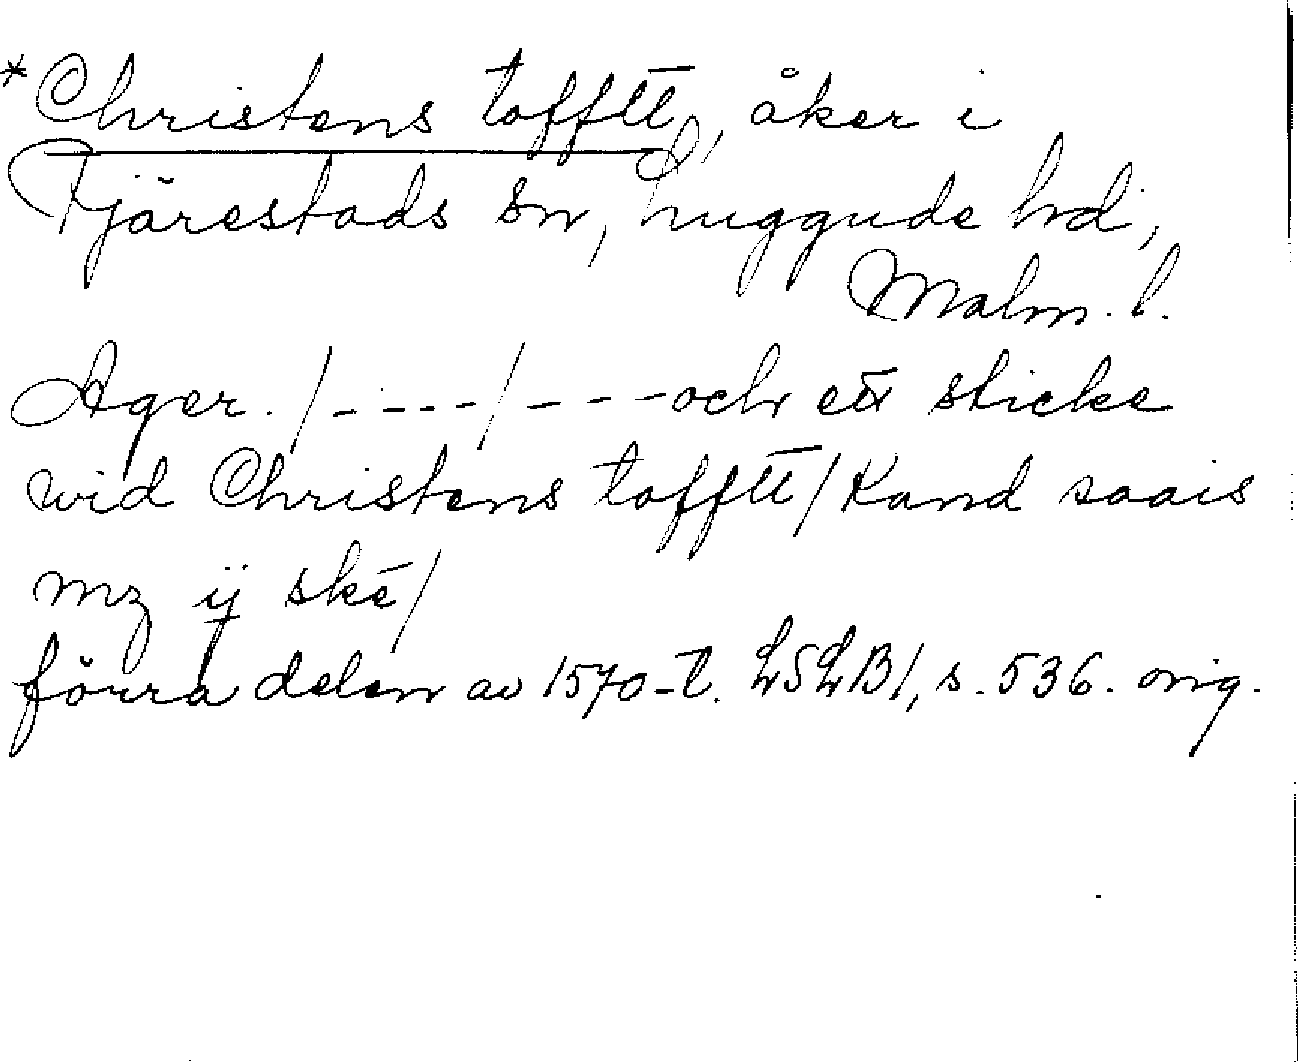 *Christens tofftt, åker i
Tjärestads sn, Luggude hd,
Malm. l.
Ager. /----/---och ett sticke
wid Christens tofftt/Kand saais
mz ij skē/
förra delen av 1570-t. LSLB1, s. 536. orig.